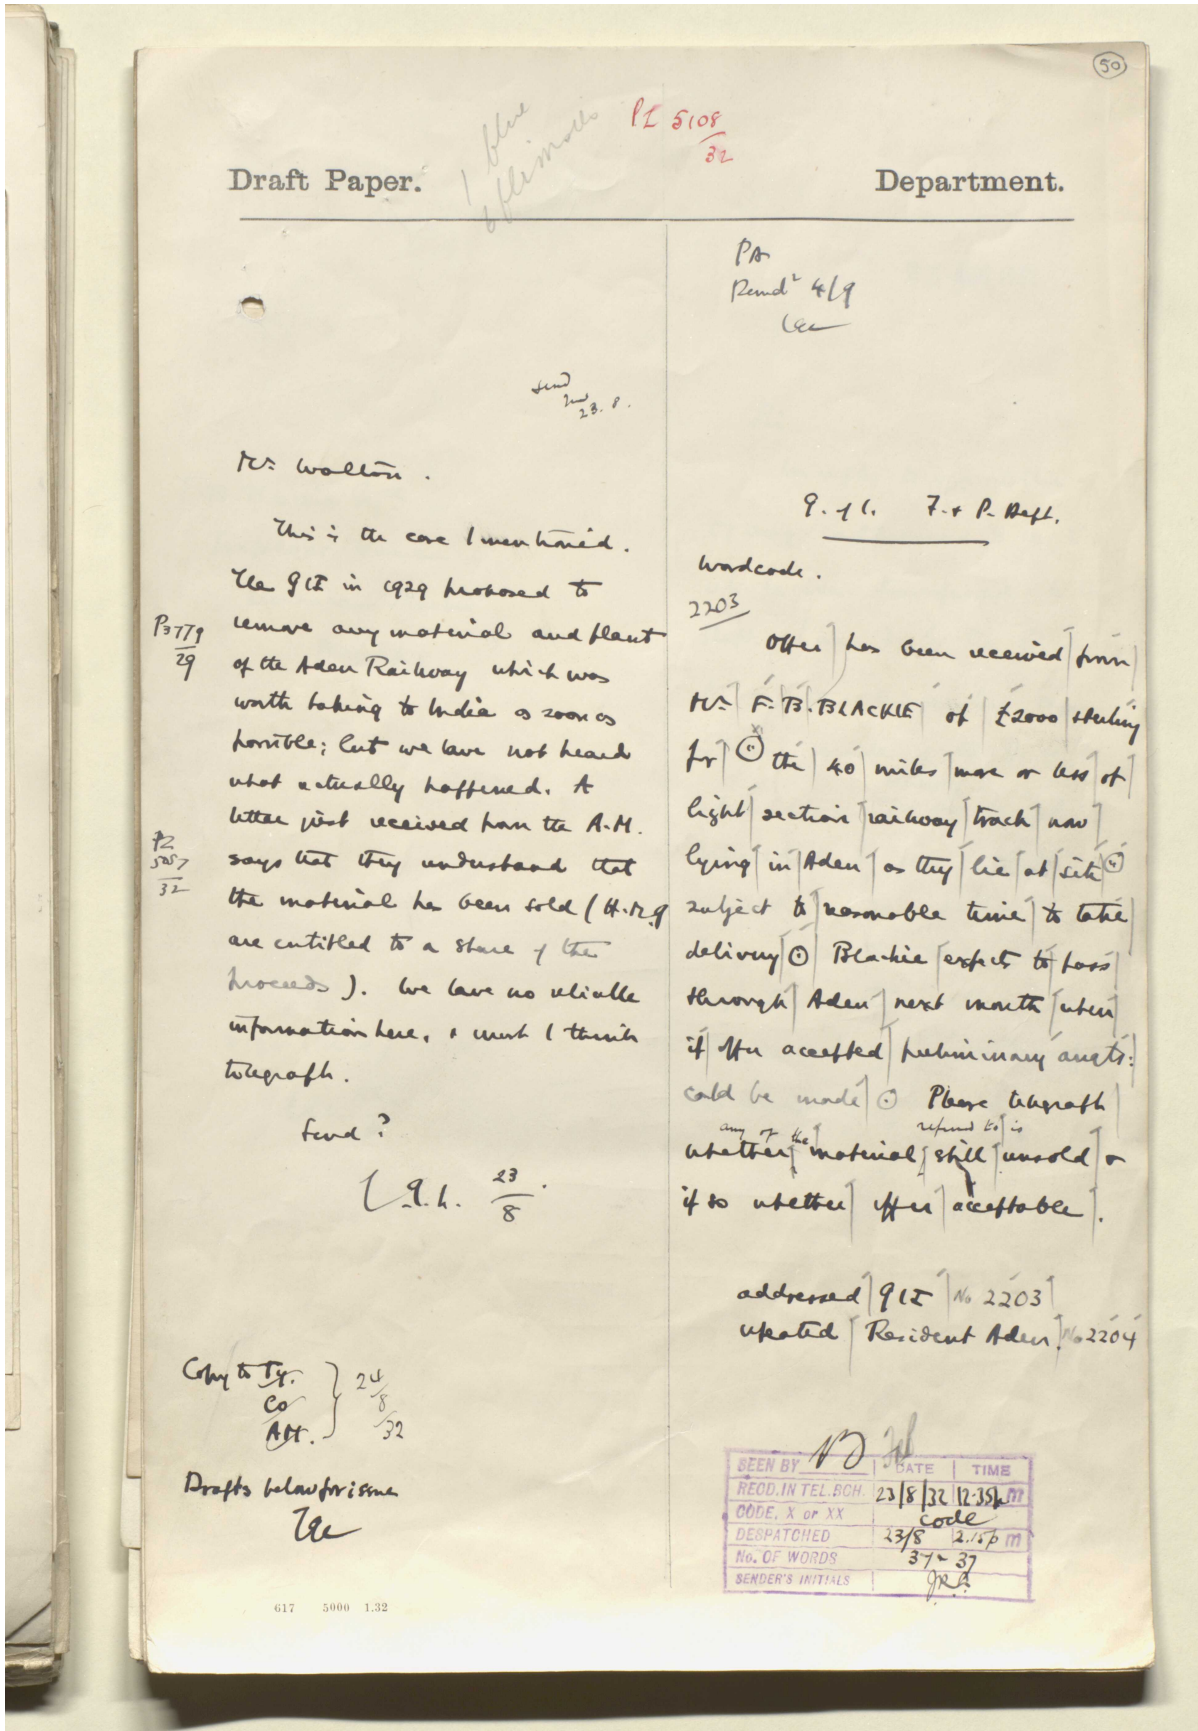 50
PZ 5108
32
1 blue
Draft Paper.
Department.
PA
4/9
Send
23.8.
Mr. Walton.
This is the case I mentioned.
The G of I in 1929 proposed to
remove any material and plant
P3779
29
of the Aden Railway which was
worth taking to India as soon as
possible; but we have not heard
what actually happened. A
letter just received from the A.M.
PZ
5057
32
says that they understand that
the material has been sold (H.M.G
are entitled to a share of the
proceeds). We have no reliable
information here, & must I think
telegraph.
Send?
23
8
Copy to Ty.
CO
A.M.
24
8
32
Drafts below for issue
617 5000 1.32
G. of I. F. & P. Dept.
Wordcode.
2203
Offer has been received from
Mr. F. B. BLACKIE of £2000 sterling
for the 40 miles more or less of
light section railway track now
lying in Aden as they lie at site
subject to reasonable time to take
delivery Blackie expects to pass
through Aden next month when
if offer accepted preliminary angts:
could be made Please telegraph
any of the referred to is
whether material still unsold &
if so whether offer acceptable.
addressed G of I No 2203
repeated Resident Aden. No 2204
SEEN BY DATE TIME
RECD. IN TEL. BCH. 23/8/32 12.35pm
CODE, X or XX code
DESPATCHED 23/8 2.15pm
No. OF WORDS 37
SENDER'S INITIALS